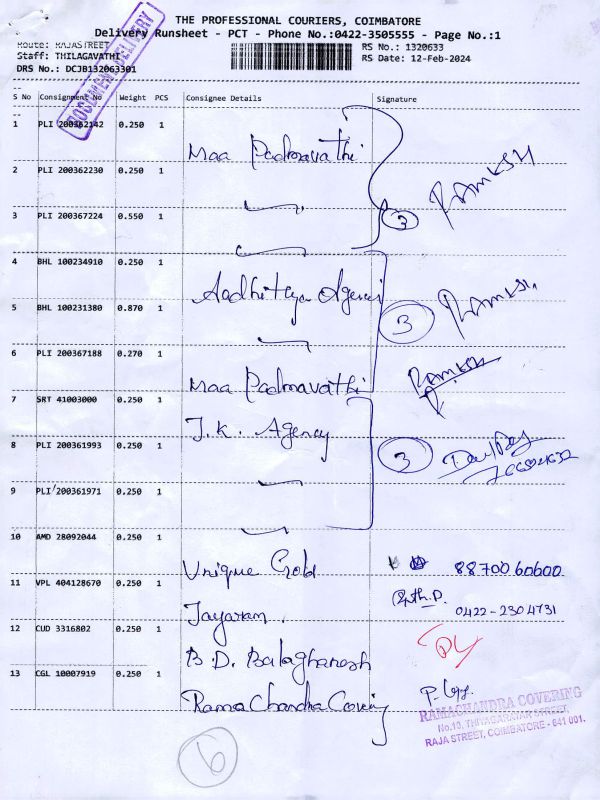 THE PROFESSIONAL COURIERS, COIMBATORE
Delivery Runsheet - PCT - Phone No.:0422-3505555 - Page No.:1
Route: RAJASTREET RS No.: 1320633
Staff: THILAGAVATHI RS Date: 12-Feb-2024
DRS No.: DCJB132063301
DOCUMENT DELIVERY
S No Consignment No Weight PCS Consignee Details Signature
1 PLI 200362142 0.250 1
Maa Padmavathi
2 PLI 200362230 0.250 1 RAMKSH
3 PLI 200367224 0.550 1 3
4 BHL 100234910 0.250 1
Aadhitya Agency RAMKSH
5 BHL 100231380 0.870 1 3
6 PLI 200367188 0.270 1
Maa Padmavathi RAMKSH
7 SRT 41003000 0.250 1
J.K. Agency
8 PLI 200361993 0.250 1 3
9 PLI 200361971 0.250 1
10 AMD 28092044 0.250 1
Unique Gold 8870060600
11 VPL 404128670 0.250 1
Jayaram. 0422-2304731
12 CUD 3316802 0.250 1
B.D. Balaghanesh
13 CGL 10007919 0.250 1
Rama Chandra Covering
RAMACHANDRA COVERING
No.10, THIYAGARAYAR STREET,
RAJA STREET, COIMBATORE - 641 001.
6